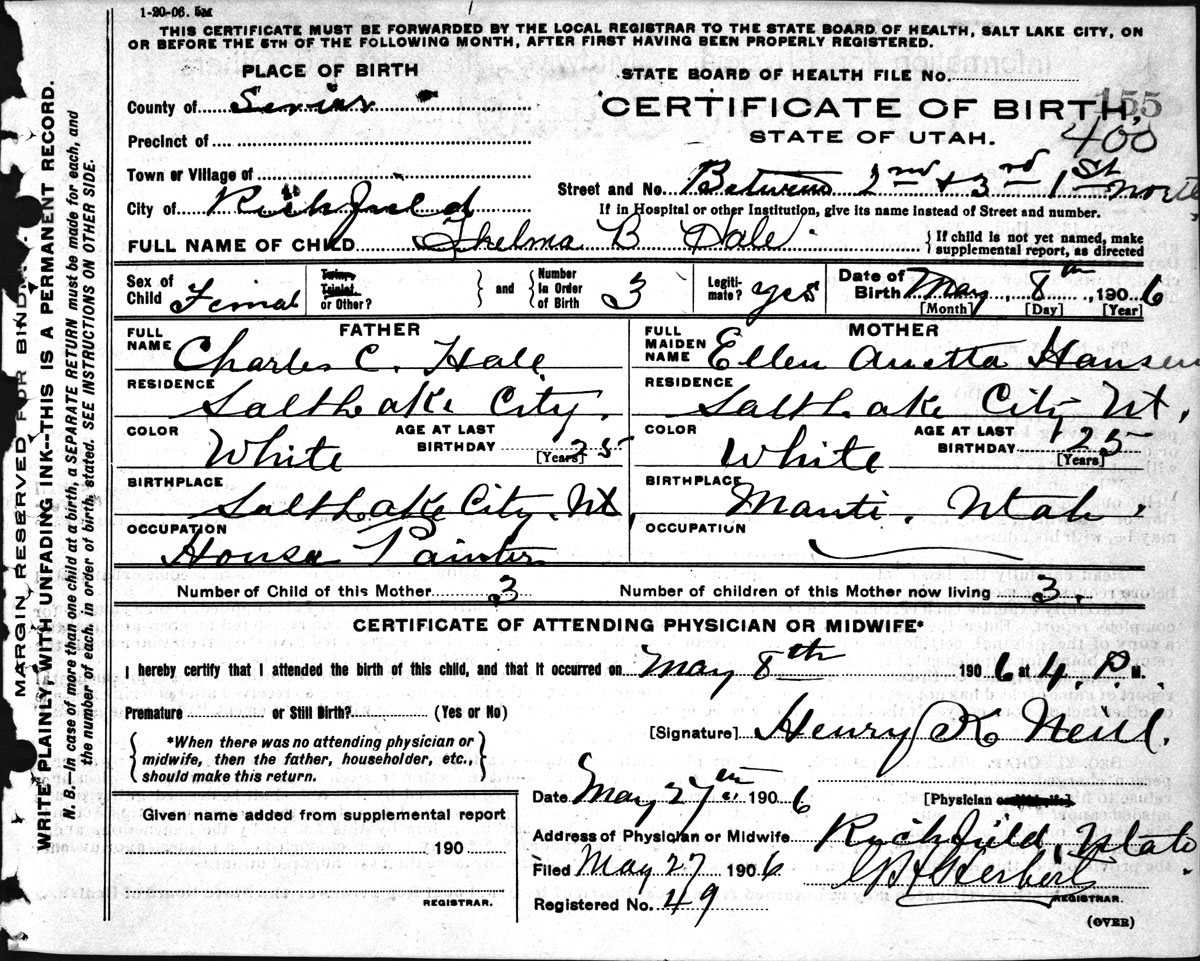 1-20-06. 5M
THIS CERTIFICATE MUST BE FORWARDED BY THE LOCAL REGISTRAR TO THE STATE BOARD OF HEALTH, SALT LAKE CITY, ON
OR BEFORE THE 5TH OF THE FOLLOWING MONTH, AFTER FIRST HAVING BEEN PROPERLY REGISTERED.
PLACE OF BIRTH
STATE BOARD OF HEALTH FILE No.
155
County of Sevier
CERTIFICATE OF BIRTH,
Precinct of
STATE OF UTAH.
400
Town or Village of
Street and No. Between 2nd + 3rd 1st North
City of Richfield
If in Hospital or other Institution, give its name instead of Street and number.
FULL NAME OF CHILD Thelma B Hale
{If child is not yet named, make supplemental report, as directed
Sex of Child Femal
Twin, Triplet, or Other?
and
Number In Order of Birth 3
Legitimate? yes
Date of Birth May 8th, 1906
[Month] [Day] [Year]
FATHER
FULL NAME Charles C. Hale
RESIDENCE Salt Lake City.
COLOR White
AGE AT LAST BIRTHDAY 25 [Years]
BIRTHPLACE Salt Lake City. Ut,
OCCUPATION House Painter
MOTHER
FULL MAIDEN NAME Ellen Anetta Hansen
RESIDENCE Salt Lake City Ut.
COLOR White
AGE AT LAST BIRTHDAY 25 [Years]
BIRTHPLACE Manti, Utah.
OCCUPATION
Number of Child of this Mother 3
Number of children of this Mother now living 3.
CERTIFICATE OF ATTENDING PHYSICIAN OR MIDWIFE*
I hereby certify that I attended the birth of this child, and that it occurred on May 8th 1906 at 4. P M.
Premature or Still Birth? (Yes or No)
[Signature] Henry K Neill.
*When there was no attending physician or
midwife, then the father, householder, etc.,
should make this return.
Date May 27th 1906
[Physician
Given name added from supplemental report
190
REGISTRAR.
Address of Physician or Midwife Richfield, Utah
Filed May 27 1906
Herbert
REGISTRAR.
Registered No. 49
(OVER)
MARGIN RESERVED FOR BINDING
WRITE PLAINLY, WITH UNFADING INK--THIS IS A PERMANENT RECORD.
N. B.—In case of more than one child at a birth, a SEPARATE RETURN must be made for each, and
the number of each, in order of birth, stated. SEE INSTRUCTIONS ON OTHER SIDE.